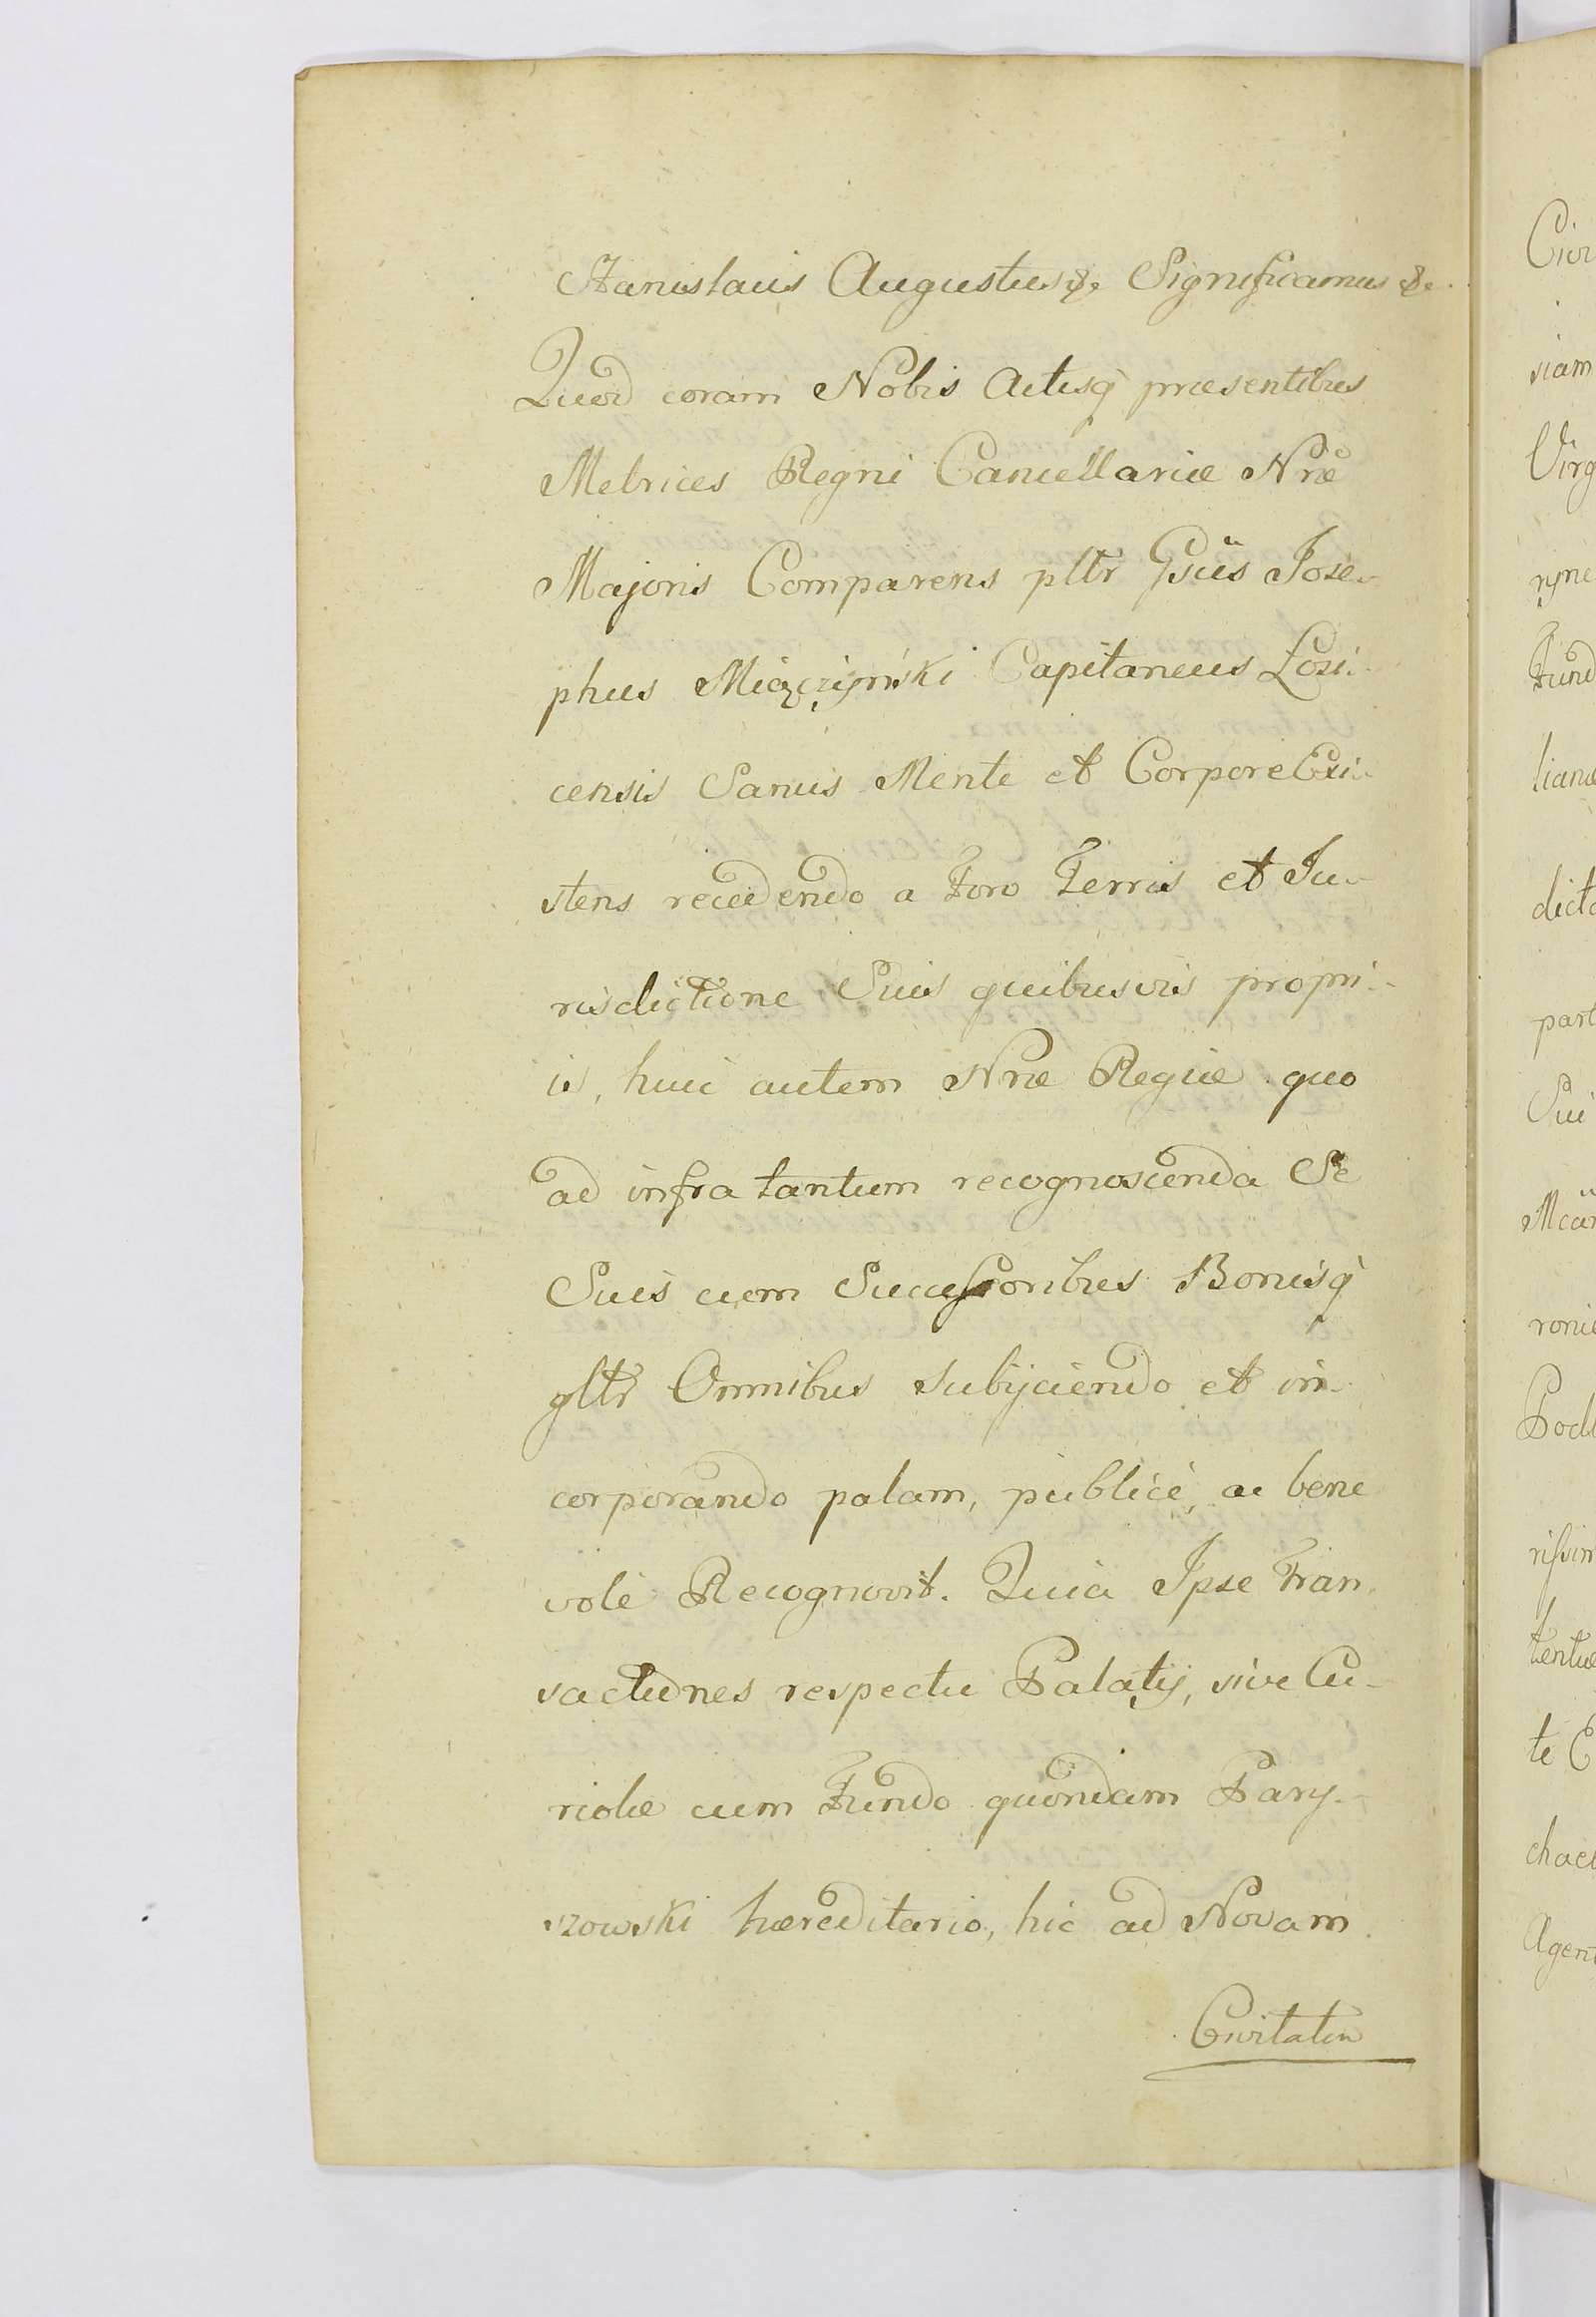 Stanislaus Augustus &c Significamus &c.
Quod coram Nobis Actisq́ præsentibus
Metrices Regni Cancellariæ Nræ
Majoris Comparens pltr Gsüs Jose-
phus Miączyński Capitaneus Łosi-
censis Sanus Mente et Corpore Exi-
stens recedendo a Foro Terris et Ju-
risdictione Suis quibusvis propri-
is, huic autem Nræ Regiæ quo
ad infra tantum recognoscenda Se
Suis cum Successoribus Bonisq́
gltr Omnibus subijciendo et in-
corporando palam, publicè, ac bene
volè Recognovit. Quia Ipse Tran-
sactiones respectu Palatij, sive Cu-
riolæ cum Fundo quondam Pary-
szowski hæreditario, hic ad Novam
Civitatem
Civi
viam
Virg
ryne
Fund
lianæ
dicto
part
Sui
Mcä
roni
Podl
rissim
tentiæ
te C
chael
Agent